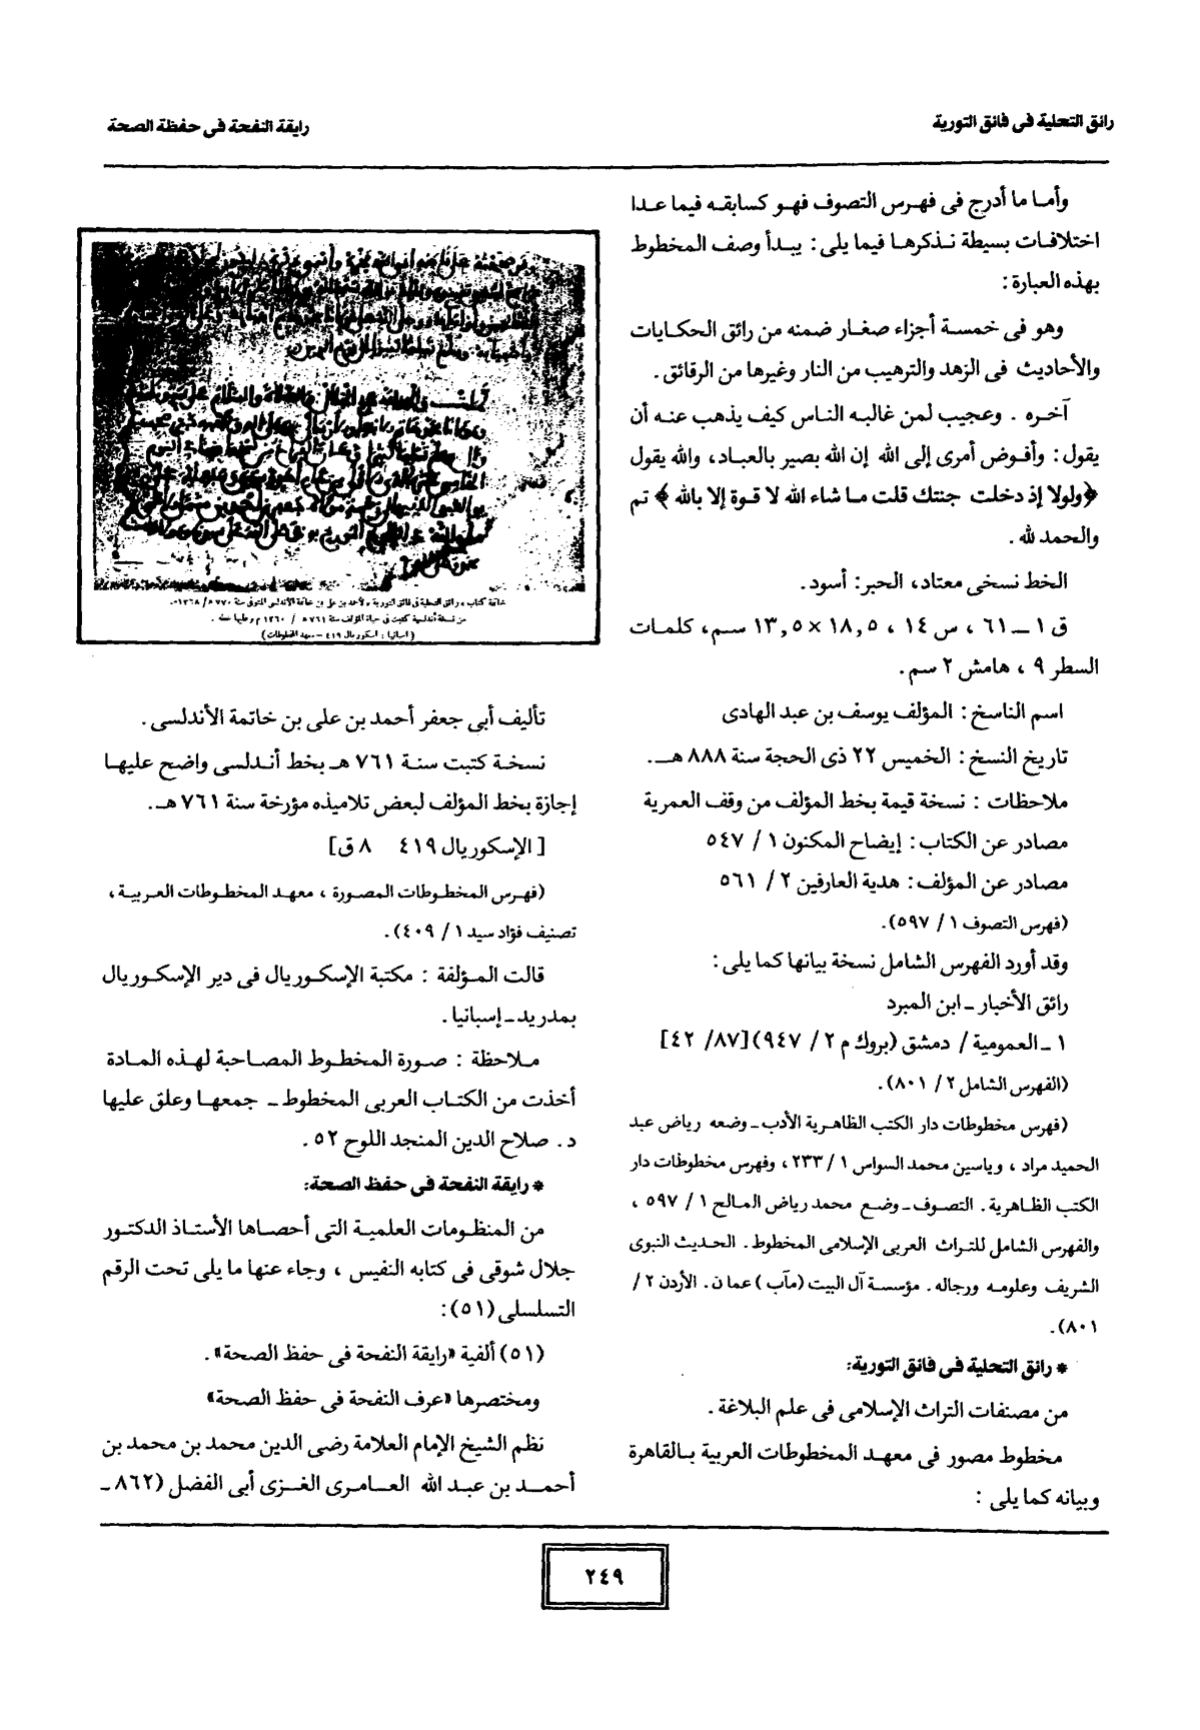 رائق التحلية فى فائق التورية
رايقة النفحة فى حفظة الصحة
وأما ما أدرج فى فهرس التصوف فهو كسابقه فيما عدا
اختلافات بسيطة نذكرها فيما يلى : يبدأ وصف المخطوط
بهذه العبارة :
وهو فى خمسة أجزاء صغار ضمنه من رائق الحكايات
والأحاديث فى الزهد والترهيب من النار وغيرها من الرقائق .
آخره . وعجيب لمن غالبه الناس كيف يذهب عنه أن
يقول : وأفوض أمرى إلى الله إن الله بصير بالعباد، والله يقول
﴿ولولا إذ دخلت جنتك قلت ما شاء الله لا قوة إلا بالله ﴾ تم
والحمد لله .
الخط نسخى معتاد، الحبر: أسود.
ق ١ ــ ٦١ ، س ١٤ ، ١٨,٥ × ١٣,٥ سم، كلمات
السطر ٩ ، هامش ٢ سم.
اسم الناسخ : المؤلف يوسف بن عبد الهادى
تاريخ النسخ : الخميس ٢٢ ذى الحجة سنة ٨٨٨ هـ.
ملاحظات : نسخة قيمة بخط المؤلف من وقف العمرية
مصادر عن الكتاب : إيضاح المكنون ١ / ٥٤٧
مصادر عن المؤلف : هدية العارفين ٢ / ٥٦١
(فهرس التصوف ١ / ٥٩٧).
وقد أورد الفهرس الشامل نسخة بيانها كما يلى :
رائق الأخبار ــ ابن المبرد
١ ــ العمومية / دمشق (بروك م ٢ / ٩٤٧) [٨٧/ ٤٢]
(الفهرس الشامل ٢ / ٨٠١).
(فهرس مخطوطات دار الكتب الظاهرية الأدب ــ وضعه رياض عبد
الحميد مراد ، وياسين محمد السواس ١ / ٢٣٣ ، وفهرس مخطوطات دار
الكتب الظاهرية . التصوف ــ وضع محمد رياض المالح ١ / ٥٩٧ ،
والفهرس الشامل للتراث العربى الإسلامى المخطوط . الحديث النبوى
الشريف وعلومه ورجاله . مؤسسة آل البيت (مآب ) عمان . الأردن ٢ /
٨٠١).
* رائق التحلية فى فائق التورية:
من مصنفات التراث الإسلامى فى علم البلاغة .
مخطوط مصور فى معهد المخطوطات العربية بالقاهرة
وبيانه كما يلى :
خاتمة كتاب « رائق التحلية فى فائق التورية » لأحمد بن على بن خاتمة الأندلسى المتوفى سنة ٧٧٠ هـ/ ١٣٦٨ م.
من نسخة أندلسية كتبت فى حياة المؤلف سنة ٧٦١ هـ / ١٣٦٠ م وعليها خطه .
( اسبانيا : اسكوريال ٤١٩ – معهد المخطوطات )
تأليف أبى جعفر أحمد بن على بن خاتمة الأندلسى .
نسخة كتبت سنة ٧٦١ هـ بخط أندلسى واضح عليها
إجازة بخط المؤلف لبعض تلاميذه مؤرخة سنة ٧٦١ هـ.
[ الإسكوريال ٤١٩ ٨ ق]
(فهرس المخطوطات المصورة ، معهد المخطوطات العربية ،
تصنيف فؤاد سيد ١ / ٤٠٩).
قالت المؤلفة : مكتبة الإسكوريال فى دير الإسكوريال
بمدريد ــ إسبانيا .
ملاحظة : صورة المخطوط المصاحبة لهذه المادة
أخذت من الكتاب العربى المخطوط ــ جمعها وعلق عليها
د . صلاح الدين المنجد اللوح ٥٢ .
* رايقة النفحة فى حفظ الصحة:
من المنظومات العلمية التى أحصاها الأستاذ الدكتور
جلال شوقى فى كتابه النفيس ، وجاء عنها ما يلى تحت الرقم
التسلسلى (٥١):
(٥١) ألفية «رايقة النفحة فى حفظ الصحة» .
ومختصرها «عرف النفحة فى حفظ الصحة»
نظم الشيخ الإمام العلامة رضى الدين محمد بن محمد بن
أحمد بن عبد الله العامرى الغزى أبى الفضل (٨٦٢ ــ
٢٤٩